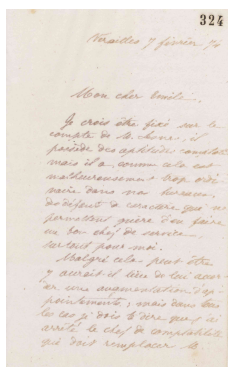 324
Versailles 7 février 74
Mon cher Emile,
Je crois être fixé sur le
compte de M. il
possède des aptitudes
mais il a, comme cela est
malheureusement trop ordi
naire dans nos bureaux,
des défauts de caractère qui ne
permettent guère d'en faire
un bon chef de service,
surtout pour moi.
Malgré cela peut être
y aurait il lieu de lui accor
der une augmentation d'ap
pointements ; mais dans tous
les cas je dois te dire que j'ai
arrêté le chef de comptabilité
qui doit remplacer